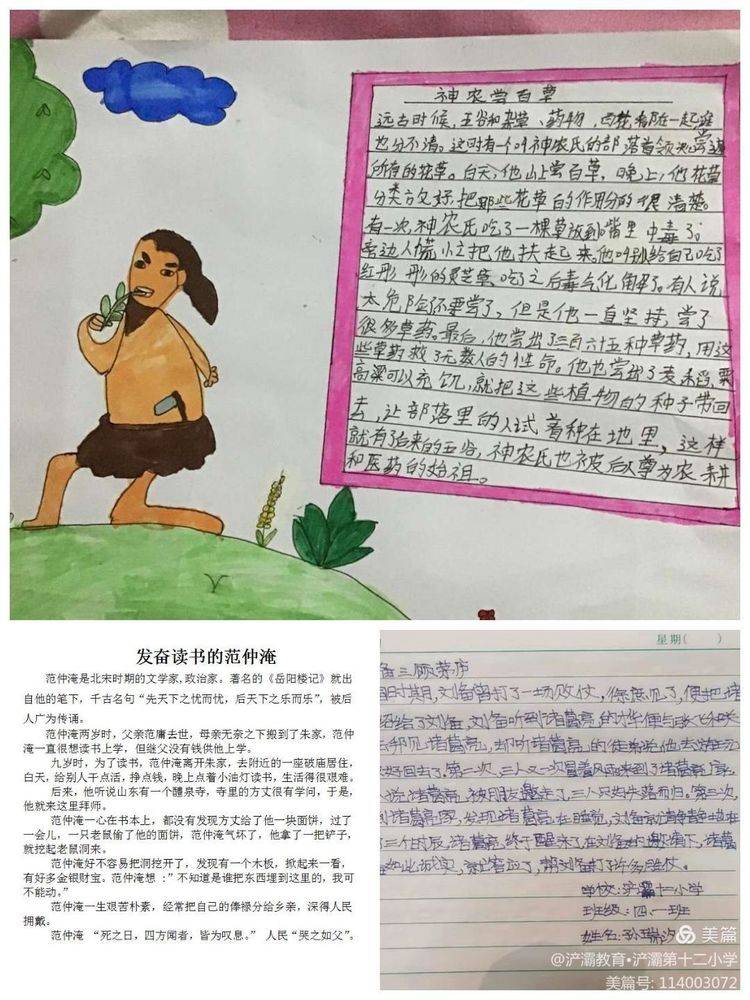 神农尝百草
远古时候,五谷和杂草、药物,百花都在一起谁
也分不清。这时有一个叫神农氏的部落首领决尝遍
所有的花草。白天,他山上尝百草,晚上,他花草
分类放好,把那些花草的作用分的很清楚。
有一次,神农氏吃了一棵草放到嘴里中毒了。
旁边人慌忙把他扶起来。他叫别给自己吃了
红彤彤的灵芝草,吃了之后毒气化解了。有人说
太危险还要尝了,但是他一直坚持,尝了
很多草药。最后,他尝出了三百六十五种草药,用这
些草药救了无数人的性命。他也尝出了麦、稻、粟
高粱可以充饥,就把这些植物的种子带回
去,让部落里的人试着种在地里,这样
就有了后来的五谷,神农氏也被后人尊为农耕
和医药的始祖。
发奋读书的范仲淹
范仲淹是北宋时期的文学家,政治家。著名的《岳阳楼记》就出
自他的笔下,千古名句“先天下之忧而忧,后天下之乐而乐”,被后
人广为传诵。
范仲淹两岁时,父亲范庸去世,母亲无奈之下搬到了朱家,范仲
淹一直很想读书上学,但继父没有钱供他上学。
九岁时,为了读书,范仲淹离开朱家,去附近的一座破庙居住,
白天,给别人干点活,挣点钱,晚上点着小油灯读书,生活得很艰难。
后来,他听说山东有一个醴泉寺,寺里的方丈很有学问,于是,
他就来这里拜师。
范仲淹一心在书本上,都没有发现方丈给了他一块面饼,过了
一会儿,一只老鼠偷了他的面饼,范仲淹气坏了,他拿了一把铲子,
就挖起老鼠洞来。
范仲淹好不容易把洞挖开了,发现有一个木板,掀起来一看,
有好多金银财宝。范仲淹想:”不知道是谁把东西埋到这里的,我可
不能动。”
范仲淹一生艰苦朴素,经常把自己的俸禄分给乡亲,深得人民
拥戴。
范仲淹 “死之日,四方闻者,皆为叹息。” 人民“哭之如父”。
星期( )
备三顾茅庐
时期,刘备曾打了一场败仗,徐庶见了,便把诸
绍给了刘备,刘备听到诸葛亮的才华便与
去拜见诸葛亮,却听诸葛亮的徒弟说他去
好回去了。第二次,三人又一次冒着风雨来到了诸葛亮家,
说诸葛亮被朋友邀走了,三人只好失落而归。第三次,
诸葛亮家,发现诸葛亮在睡觉,刘备就
了三个时辰,诸葛亮终于醒来了,在刘备的邀请下,诸葛
如此诚实,就答应了,帮刘备打了许多胜仗。
学校:浐灞十二小学
班级:四.一班
姓名:孙瑞汐
美篇
@浐灞教育•浐灞第十二小学
美篇号:114003072